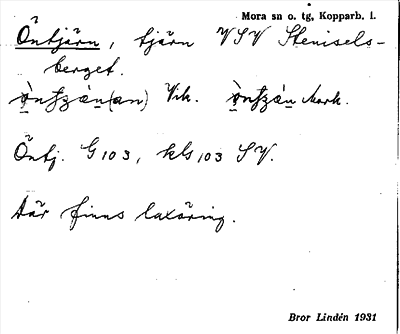 Mora sn o. tg, Kopparb. l.
Öntjärn, tjärn VSV Stenisels-
berget.
Vik. Mork.
Öntj. G 103, kls 103 SV.
Där finns laxöring.
Bror Lindén 1931